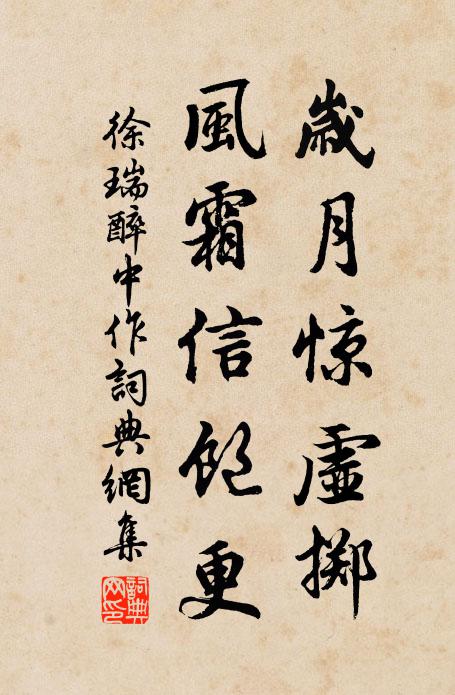 歲月惊虛擲
風霜信飽更
徐瑞醉中作詞典網集
詞典網印